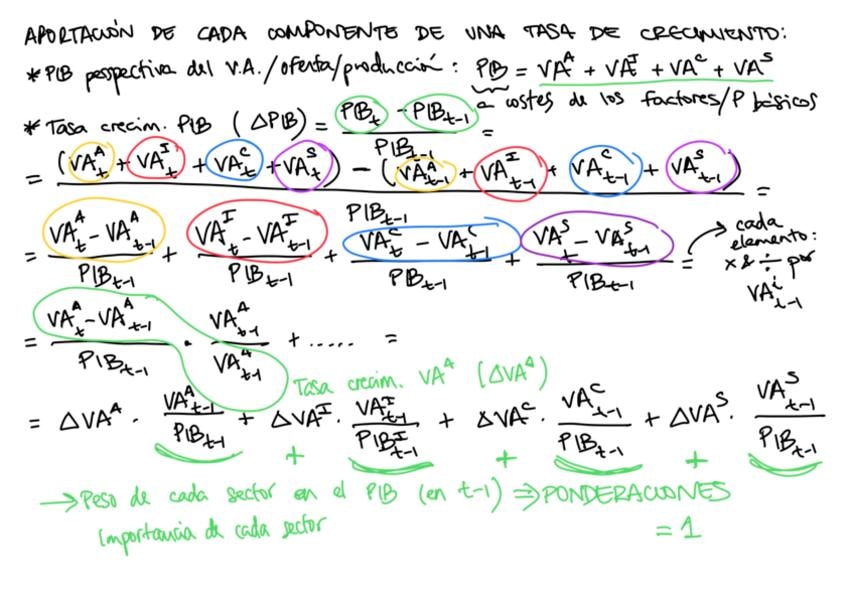 APORTACIÓN DE CADA COMPONENTE DE UNA TASA DE CRECIMIENTO:
* PIB perspectiva del V.A./oferta/producción: PIB = VA^A + VA^I + VA^C + VA^S
a costes de los factores/P básicos
* Tasa crecim. PIB (ΔPIB) = (PIB_t - PIB_t-1) / PIB_t-1 =
= ((VA^A_t + VA^I_t + VA^C_t + VA^S_t) - (VA^A_t-1 + VA^I_t-1 + VA^C_t-1 + VA^S_t-1)) / PIB_t-1 =
= (VA^A_t - VA^A_t-1) / PIB_t-1 + (VA^I_t - VA^I_t-1) / PIB_t-1 + (VA^C_t - VA^C_t-1) / PIB_t-1 + (VA^S_t - VA^S_t-1) / PIB_t-1 = → cada elemento: x & ÷ por VA^i_t-1
= (VA^A_t - VA^A_t-1) / PIB_t-1 · VA^A_t-1 / VA^A_t-1 + ..... =
Tasa crecim. VA^A (ΔVA^A)
= ΔVA^A · VA^A_t-1 / PIB_t-1 + ΔVA^I · VA^I_t-1 / PIB^I_t-1 + ΔVA^C · VA^C_t-1 / PIB_t-1 + ΔVA^S · VA^S_t-1 / PIB_t-1
+ + +
→ Peso de cada sector en el PIB (en t-1) ⇒ PONDERACIONES
Importancia de cada sector = 1